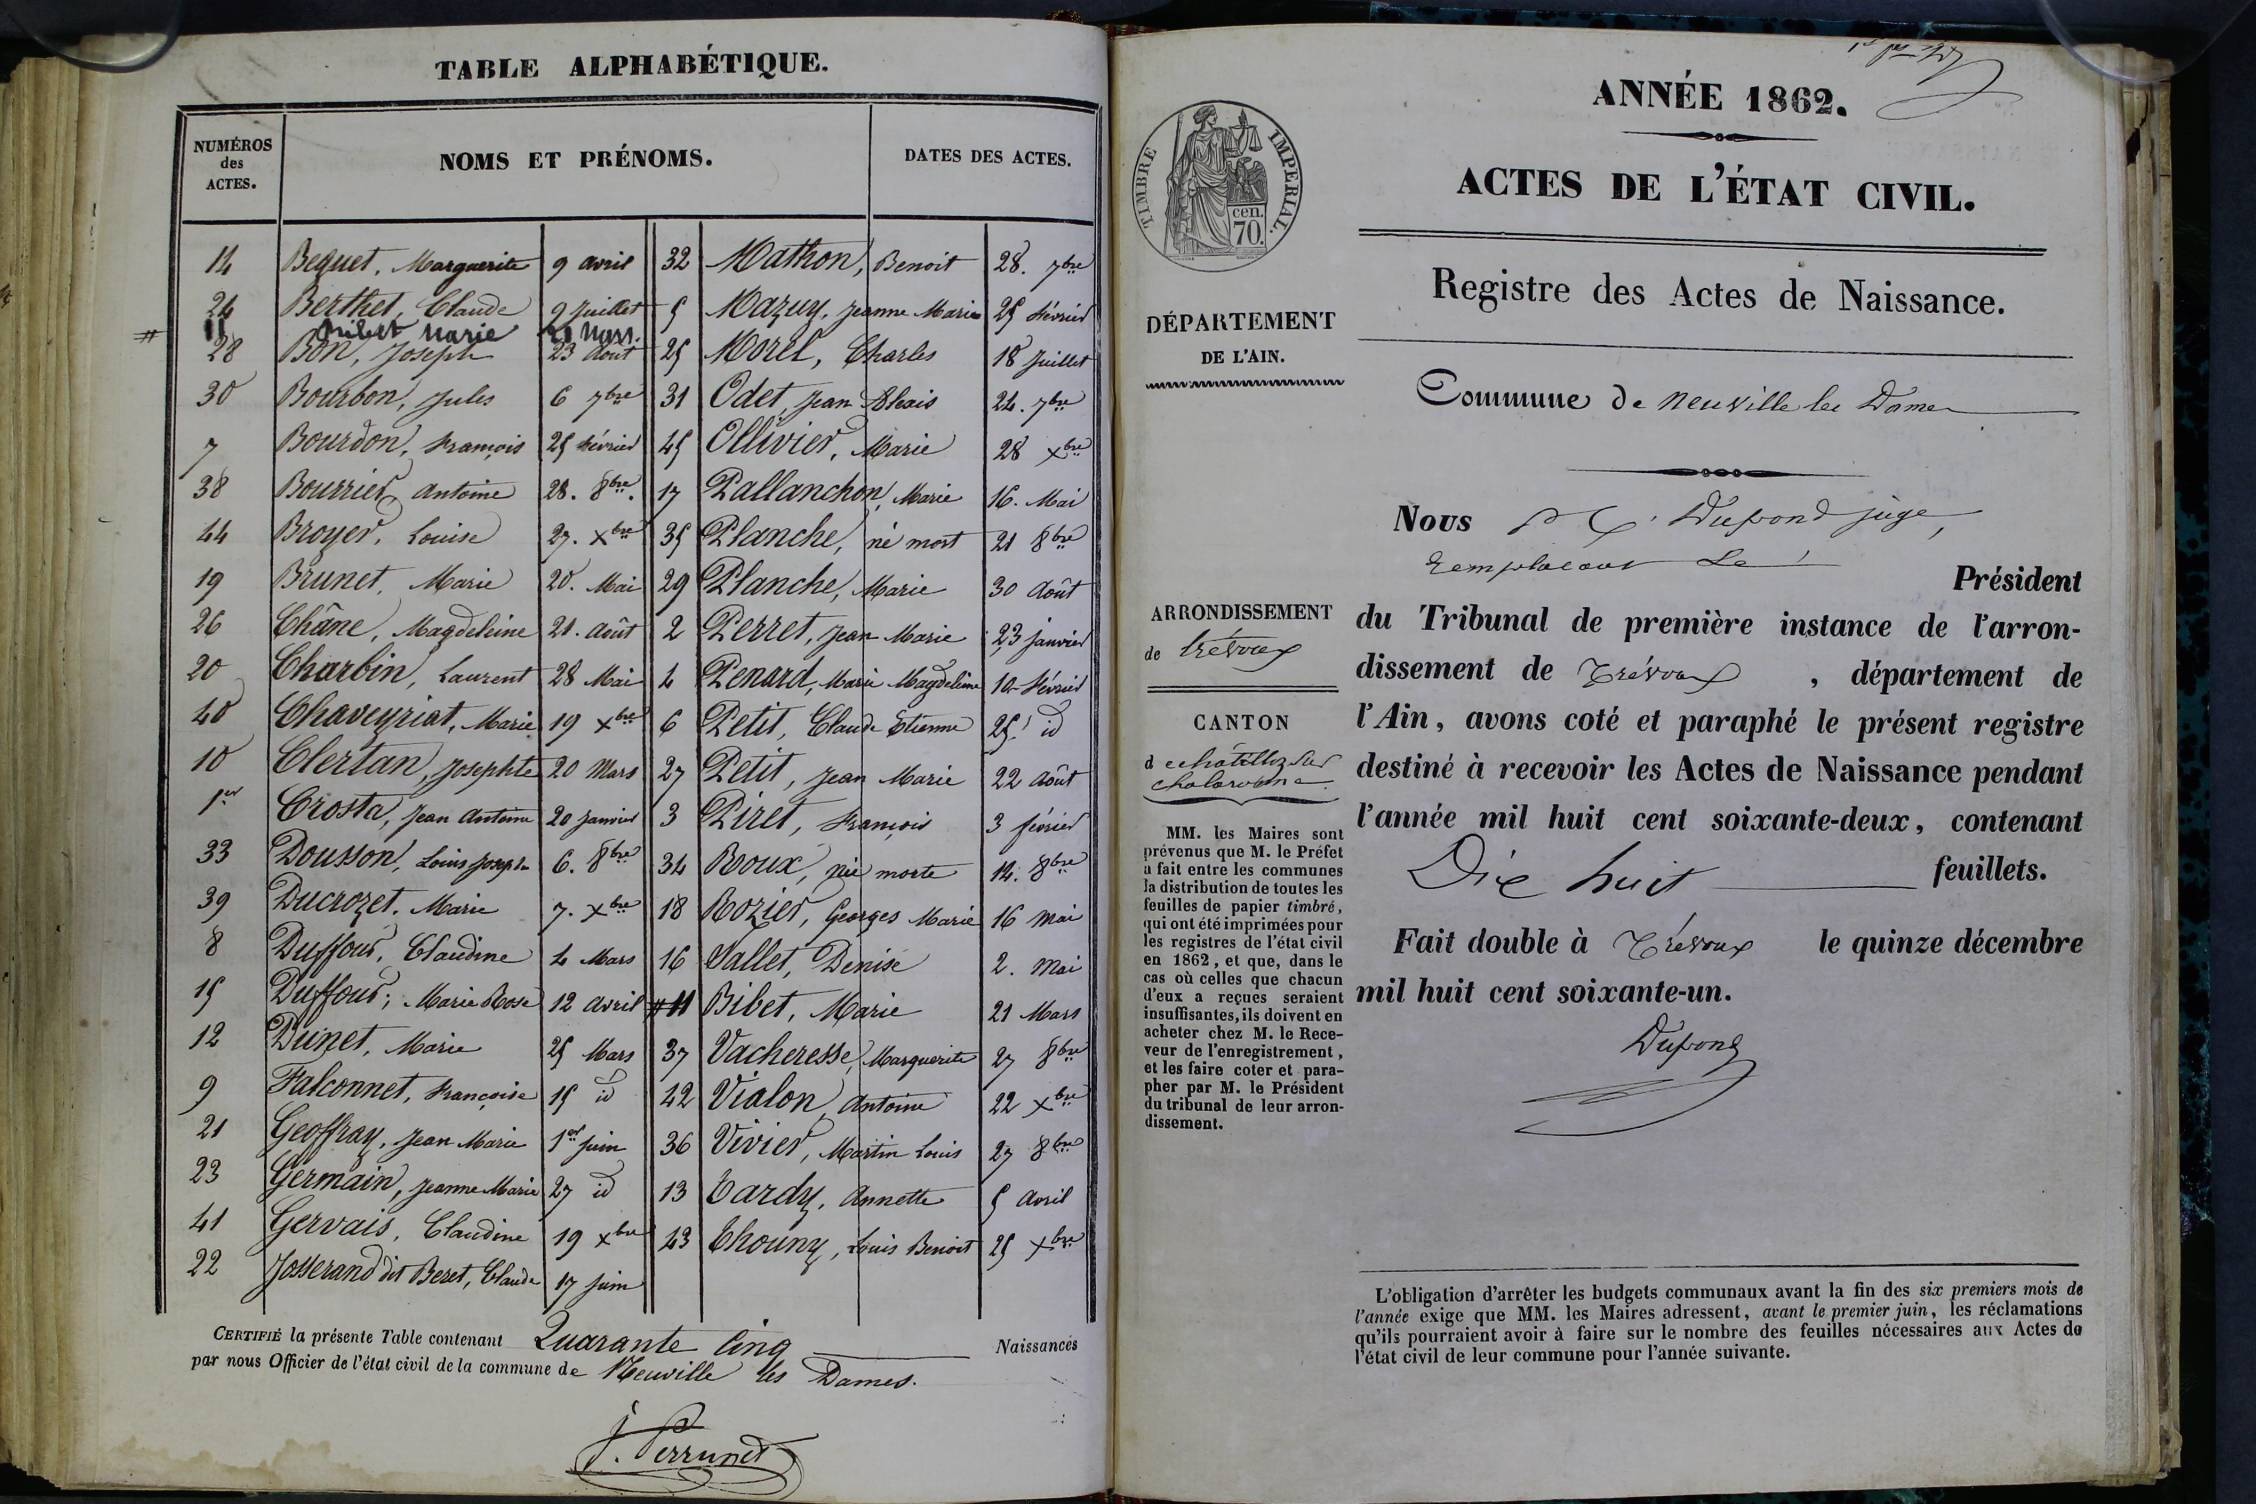 TABLE ALPHABÉTIQUE.
NUMÉROS
des
ACTES.
NOMS ET PRÉNOMS.
DATES DES ACTES.
14 Bequet, Marguerite 9 avril
24 Berthet, Claude 9 Juillet
# 11 Bibet Marie 21 Mars.
28 Bon, Joseph 23 Août
30 Bourbon, Jules 6 7bre
7 Bourdon, François 25 février
38 Bourrier, Antoine 28. 8bre.
44 Broyer, Louise 27. Xbre
19 Brunet, Marie 20. Mai
26 Châne, Magdeleine 21. Août
20 Charbin, Laurent 28 Mai
40 Chaveyriat, Marie 19 Xbre
10 Clertan, Josephte 20 Mars
1er Crosta, Jean Antoine 20 janvier
33 Dousson, Louis Joseph 6. 8bre
39 Ducrozet, Marie 7. Xbre
8 Duffour, Claudine 4 Mars
15 Duffour, Marie Rose 12 avril
12 Dunet, Marie 25 Mars
9 Falconnet, Françoise 15 id
21 Geoffray, Jean Marie 1er juin
23 Germain, Jeanne Marie 27 id
41 Gervais, Claudine 19 Xbre
22 Josserand dit Beret, Claude 17 juin
32 Mathon, Benoit 28. 7bre
5 Mazuy, Jeanne Marie 25 février
25 Morel, Charles 18 Juillet
31 Odet, Jean Alexis 24. 7bre
45 Ollivier, Marie 28 Xbre
17 Pallanchon, Marie 16. Mai
35 Planche, né mort 21 8bre
29 Planche, Marie 30 Août
2 Perret, Jean Marie 23 janvier
4 Penard, Marie Magdeleine 10 février
6 Petit, Claude Etienne 25. id
27 Petit, Jean Marie 22 Août
3 Piret, François 3 février
34 Roux, née morte 14. 8bre
18 Rozier, Georges Marie 16 Mai
16 Sallet, Denise 2. Mai
# 11 Bibet, Marie 21 Mars
37 Vacheresse, Marguerite 27 8bre
42 Vialon, Antoine 22 Xbre
36 Vivier, Martin Louis 27 8bre
13 Tardy, Annette 5 Avril
43 Thouny, Louis Benoit 25 Xbre
CERTIFIÉ la présente Table contenant Quarante Cinq Naissances
par nous Officier de l'état civil de la commune de Neuville les Dames.
J. Perrunet
ANNÉE 1862.
ACTES DE L'ÉTAT CIVIL.
Registre des Actes de Naissance.
TIMBRE IMPERIAL.
cen.
70.
DÉPARTEMENT
DE L'AIN.
Commune de Neuville les Dames
ARRONDISSEMENT
de Trévoux
CANTON
de chatillon sur
chalaronne
MM. les Maires sont
prévenus que M. le Préfet
a fait entre les communes
la distribution de toutes les
feuilles de papier timbré,
qui ont été imprimées pour
les registres de l'état civil
en 1862, et que, dans le
cas où celles que chacun
d'eux a reçues seraient
insuffisantes, ils doivent en
acheter chez M. le Rece-
veur de l'enregistrement,
et les faire coter et para-
pher par M. le Président
du tribunal de leur arron-
dissement.
Nous Dupond juge,
remplacant Le Président
du Tribunal de première instance de l'arron-
dissement de Trévoux, département de
l'Ain, avons coté et paraphé le présent registre
destiné à recevoir les Actes de Naissance pendant
l'année mil huit cent soixante-deux, contenant
Dix huit feuillets.
Fait double à Trévoux le quinze décembre
mil huit cent soixante-un.
Dupond
L'obligation d'arrêter les budgets communaux avant la fin des six premiers mois de
l'année exige que MM. les Maires adressent, avant le premier juin, les réclamations
qu'ils pourraient avoir à faire sur le nombre des feuilles nécessaires aux Actes de
l'état civil de leur commune pour l'année suivante.